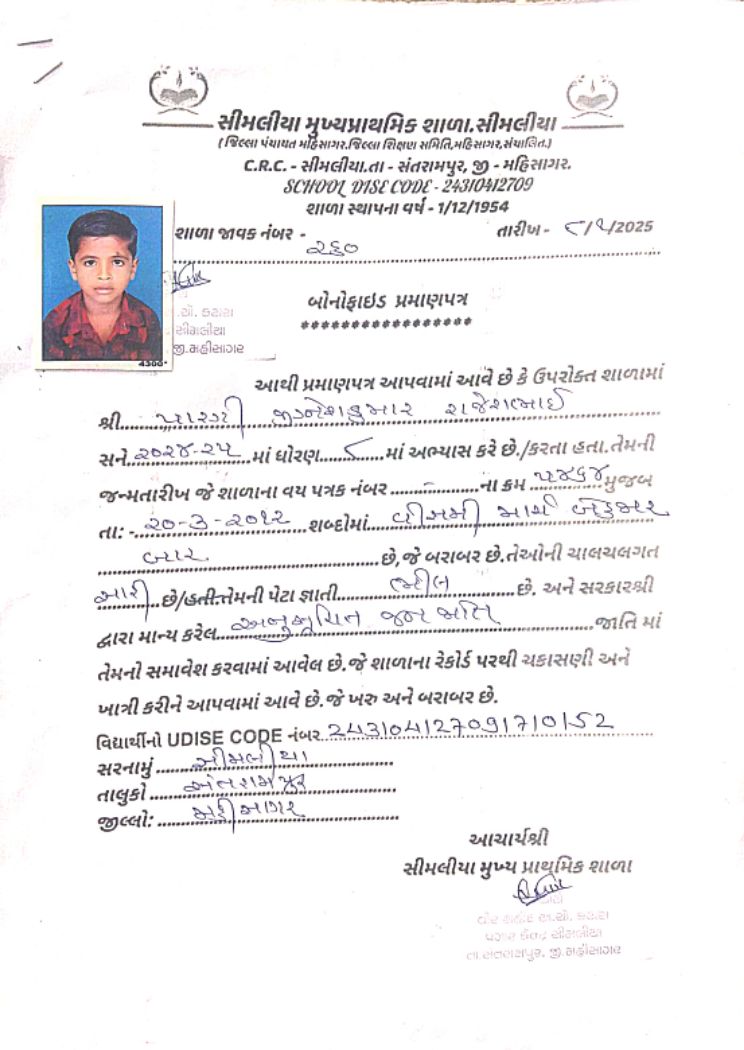 સીમલીયા મુખ્યપ્રાથમિક શાળા.સીમલીયા
( જિલ્લા પંચાયત મહિસાગર.જિલ્લા શિક્ષણ સમિતિ,મહિસાગર,સંચાલિત.)
C.R.C. - સીમલીયા.તા - સંતરામપુર, જી - મહિસાગર.
SCHOOL DISE CODE - 24310412709
શાળા સ્થાપના વર્ષ - 1/12/1954
શાળા જાવક નંબર - ૨૬૦ તારીખ - ૮/૧/2025
સીમલીયા
જી.મહીસાગર
4386*
બોનોફાઇડ પ્રમાણપત્ર
*****************
આથી પ્રમાણપત્ર આપવામાં આવે છે કે ઉપરોક્ત શાળામાં
શ્રી....પારગી જીગ્નેશકુમાર રાજેશભાઈ
સને.૨૦૨૪-૨૫.માં ધોરણ....૮....માં અભ્યાસ કરે છે./કરતા હતા.તેમની
જન્મતારીખ જે શાળાના વય પત્રક નંબર ......-......ના ક્રમ ૫૪૬૪ મુજબ
તા: - ૨૦-૩-૨૦૧૨ શબ્દોમાં.. વીસમી માર્ચ બેહજાર
બાર ............ છે, જે બરાબર છે.તેઓની ચાલચલગત
સારી છે/હતી.તેમની પેટા જ્ઞાતી....ભીલ....છે. અને સરકારશ્રી
દ્વારા માન્ય કરેલ..અનુસૂચિત જન જાતિ....જાતિ માં
તેમનો સમાવેશ કરવામાં આવેલ છે.જે શાળાના રેકોર્ડ પરથી ચકાસણી અને
ખાત્રી કરીને આપવામાં આવે છે.જે ખરુ અને બરાબર છે.
વિદ્યાર્થીનો UDISE CODE નંબર 243104127091710152
સરનામું ....સીમલીયા
તાલુકો ....સંતરામપુર
જીલ્લો: ....મહીસાગર
આચાર્યશ્રી
સીમલીયા મુખ્ય પ્રાથમિક શાળા